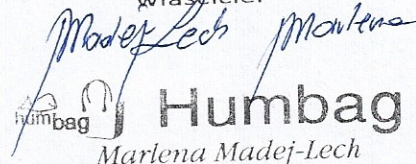 właściciel
Madej-Lech Marlena
humbag Humbag
Marlena Madej-Lech